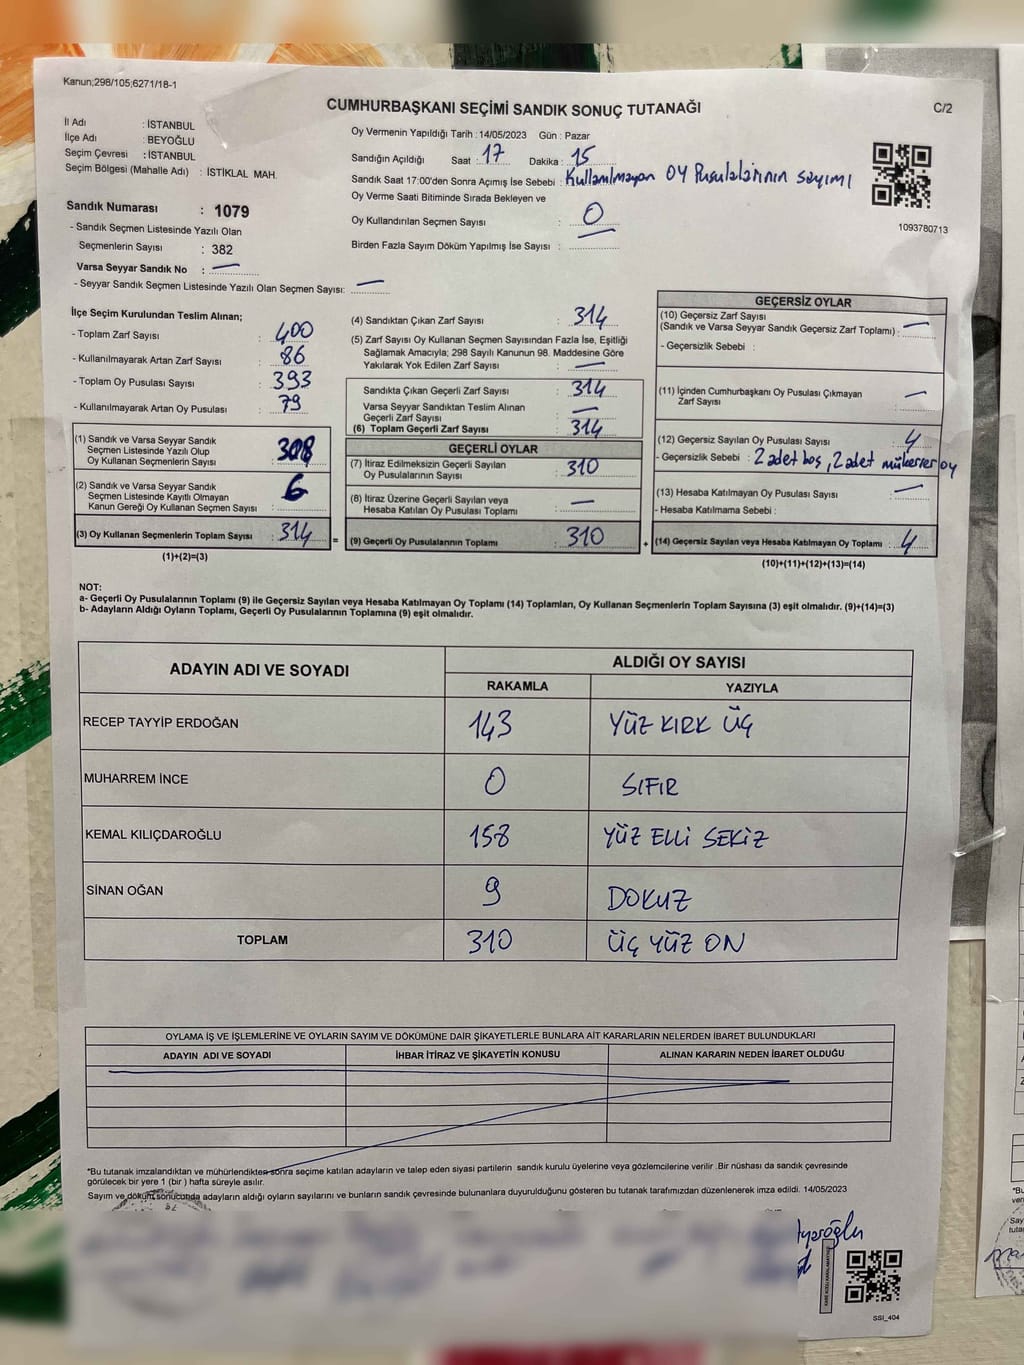 Kanun;298/105;6271/18-1
CUMHURBAŞKANI SEÇİMİ SANDIK SONUÇ TUTANAĞI
C/2
İl Adı : İSTANBUL
İlçe Adı : BEYOĞLU
Seçim Çevresi : İSTANBUL
Seçim Bölgesi (Mahalle Adı) : İSTİKLAL MAH.
Sandık Numarası : 1079
- Sandık Seçmen Listesinde Yazılı Olan
Seçmenlerin Sayısı : 382
Varsa Seyyar Sandık No : —
- Seyyar Sandık Seçmen Listesinde Yazılı Olan Seçmen Sayısı: —
Oy Vermenin Yapıldığı Tarih : 14/05/2023 Gün : Pazar
Sandığın Açıldığı Saat : 17 Dakika : 15
Sandık Saat 17:00'den Sonra Açımış İse Sebebi : Kullanılmayan OY Pusulalarının sayımı
Oy Verme Saati Bitiminde Sırada Bekleyen ve
Oy Kullandırılan Seçmen Sayısı : 0
Birden Fazla Sayım Döküm Yapılmış İse Sayısı :
1093780713
İlçe Seçim Kurulundan Teslim Alınan;
- Toplam Zarf Sayısı : 400
- Kullanılmayarak Artan Zarf Sayısı : 86
- Toplam Oy Pusulası Sayısı : 393
- Kullanılmayarak Artan Oy Pusulası : 79
(1) Sandık ve Varsa Seyyar Sandık
Seçmen Listesinde Yazılı Olup
Oy Kullanan Seçmenlerin Sayısı : 308
(2) Sandık ve Varsa Seyyar Sandık
Seçmen Listesinde Kayıtlı Olmayan
Kanun Gereği Oy Kullanan Seçmen Sayısı : 6
(3) Oy Kullanan Seçmenlerin Toplam Sayısı : 314 =
(1)+(2)=(3)
(4) Sandıktan Çıkan Zarf Sayısı : 314
(5) Zarf Sayısı Oy Kullanan Seçmen Sayısından Fazla İse, Eşitliği
Sağlamak Amacıyla; 298 Sayılı Kanunun 98. Maddesine Göre
Yakılarak Yok Edilen Zarf Sayısı : —
Sandıkta Çıkan Geçerli Zarf Sayısı : 314
Varsa Seyyar Sandıktan Teslim Alınan
Geçerli Zarf Sayısı : —
(6) Toplam Geçerli Zarf Sayısı : 314
GEÇERLİ OYLAR
(7) İtiraz Edilmeksizin Geçerli Sayılan
Oy Pusulalarının Sayısı : 310
(8) İtiraz Üzerine Geçerli Sayılan veya
Hesaba Katılan Oy Pusulası Toplamı : —
(9) Geçerli Oy Pusulalarının Toplamı : 310 +
GEÇERSİZ OYLAR
(10) Geçersiz Zarf Sayısı
(Sandık ve Varsa Seyyar Sandık Geçersiz Zarf Toplamı) : —
- Geçersizlik Sebebi :
(11) İçinden Cumhurbaşkanı Oy Pusulası Çıkmayan
Zarf Sayısı : —
(12) Geçersiz Sayılan Oy Pusulası Sayısı : 4
- Geçersizlik Sebebi : 2 adet boş, 2 adet mükerrer oy
(13) Hesaba Katılmayan Oy Pusulası Sayısı : —
- Hesaba Katılmama Sebebi :
(14) Geçersiz Sayılan veya Hesaba Katılmayan Oy Toplamı : 4
(10)+(11)+(12)+(13)=(14)
NOT:
a- Geçerli Oy Pusulalarının Toplamı (9) ile Geçersiz Sayılan veya Hesaba Katılmayan Oy Toplamı (14) Toplamları, Oy Kullanan Seçmenlerin Toplam Sayısına (3) eşit olmalıdır. (9)+(14)=(3)
b- Adayların Aldığı Oyların Toplamı, Geçerli Oy Pusulalarının Toplamına (9) eşit olmalıdır.
ADAYIN ADI VE SOYADI
ALDIĞI OY SAYISI
RAKAMLA YAZIYLA
RECEP TAYYİP ERDOĞAN 143 YÜZ KIRK ÜÇ
MUHARREM İNCE 0 SIFIR
KEMAL KILIÇDAROĞLU 158 YÜZ ELLİ SEKİZ
SİNAN OĞAN 9 DOKUZ
TOPLAM 310 ÜÇ YÜZ ON
OYLAMA İŞ VE İŞLEMLERİNE VE OYLARIN SAYIM VE DÖKÜMÜNE DAİR ŞİKAYETLERLE BUNLARA AİT KARARLARIN NELERDEN İBARET BULUNDUKLARI
ADAYIN ADI VE SOYADI İHBAR İTİRAZ VE ŞİKAYETİN KONUSU ALINAN KARARIN NEDEN İBARET OLDUĞU
*Bu tutanak imzalandıktan ve mühürlendikten sonra seçime katılan adayların ve talep eden siyasi partilerin sandık kurulu üyelerine veya gözlemcilerine verilir .Bir nüshası da sandık çevresinde
görülecek bir yere 1 (bir ) hafta süreyle asılır.
Sayım ve döküm sonucunda adayların aldığı oyların sayılarını ve bunların sandık çevresinde bulunanlara duyurulduğunu gösteren bu tutanak tarafımızdan düzenlenerek imza edildi. 14/05/2023
SSI_404